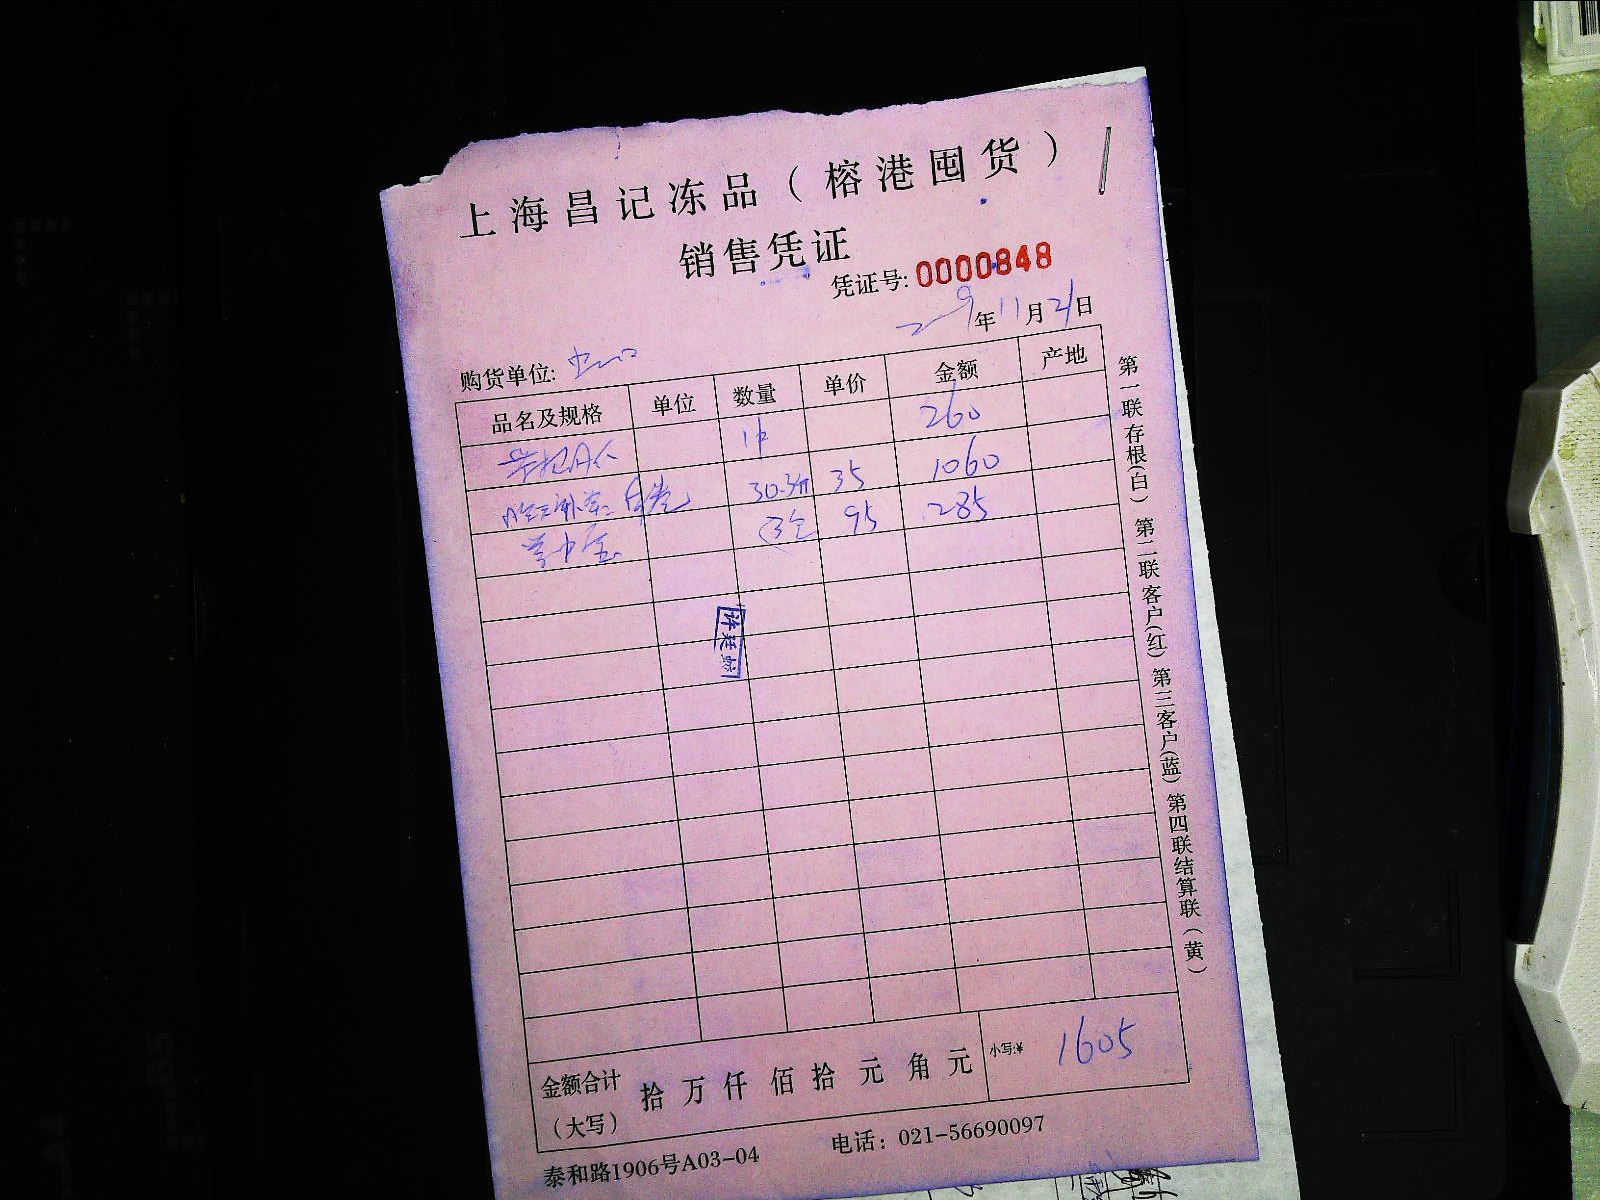 上海昌记冻品（榕港囤货）
销售凭证
凭证号: 0000848
年11月21日
购货单位: 虹口
品名及规格 单位 数量 单价 金额 产地
1件 260
30.3斤 35 1060
3包 95 285
金额合计（大写） 拾 万 仟 佰 拾 元 角 元 小写:¥ 1605
泰和路1906号A03-04 电话：021-56690097
第一联存根(白) 第二联客户(红) 第三客户(蓝) 第四联结算联(黄)